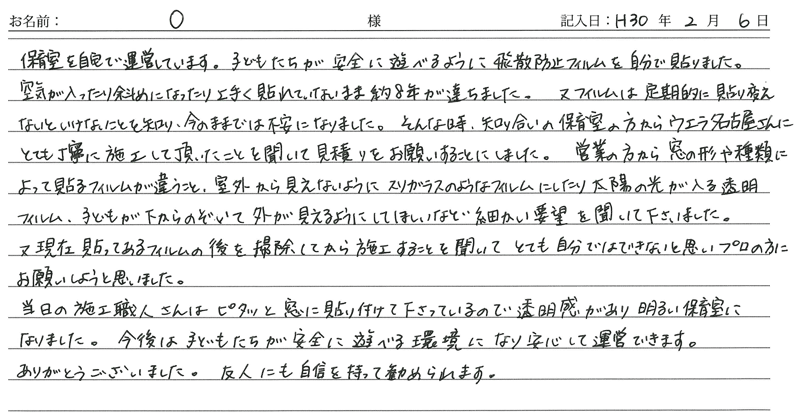 お名前： O 様 記入日：H30年2月6日
保育室を自宅で運営しています。子どもたちが安全に遊べるように飛散防止フィルムを自分で貼りました。
空気が入ったり斜めになったり上手く貼れていないまま約8年が達ちました。又フィルムは定期的に貼り変え
ないといけないことを知り、今のままでは不安になりました。そんな時、知り合いの保育室の方からウエラ名古屋さんに
とても丁寧に施工して頂いたことを聞いて見積りをお願いすることにしました。営業の方から窓の形や種類に
よって貼るフィルムが違うこと、室外から見えないようにスリガラスのようなフィルムにしたり太陽の光が入る透明
フィルム、子どもが下からのぞいて外が見えるようにしてほしいなど細かい要望を聞いて下さいました。
又現在貼ってあるフィルムの後を掃除してから施工することを聞いてとても自分ではできないと思いプロの方に
お願いしようと思いました。
当日の施工職人さんはピタッと窓に貼り付けて下さっているので透明感があり明るい保育室に
なりました。今後は子どもたちが安全に遊べる環境になり安心して運営できます。
ありがとうございました。友人にも自信を持って勧められます。